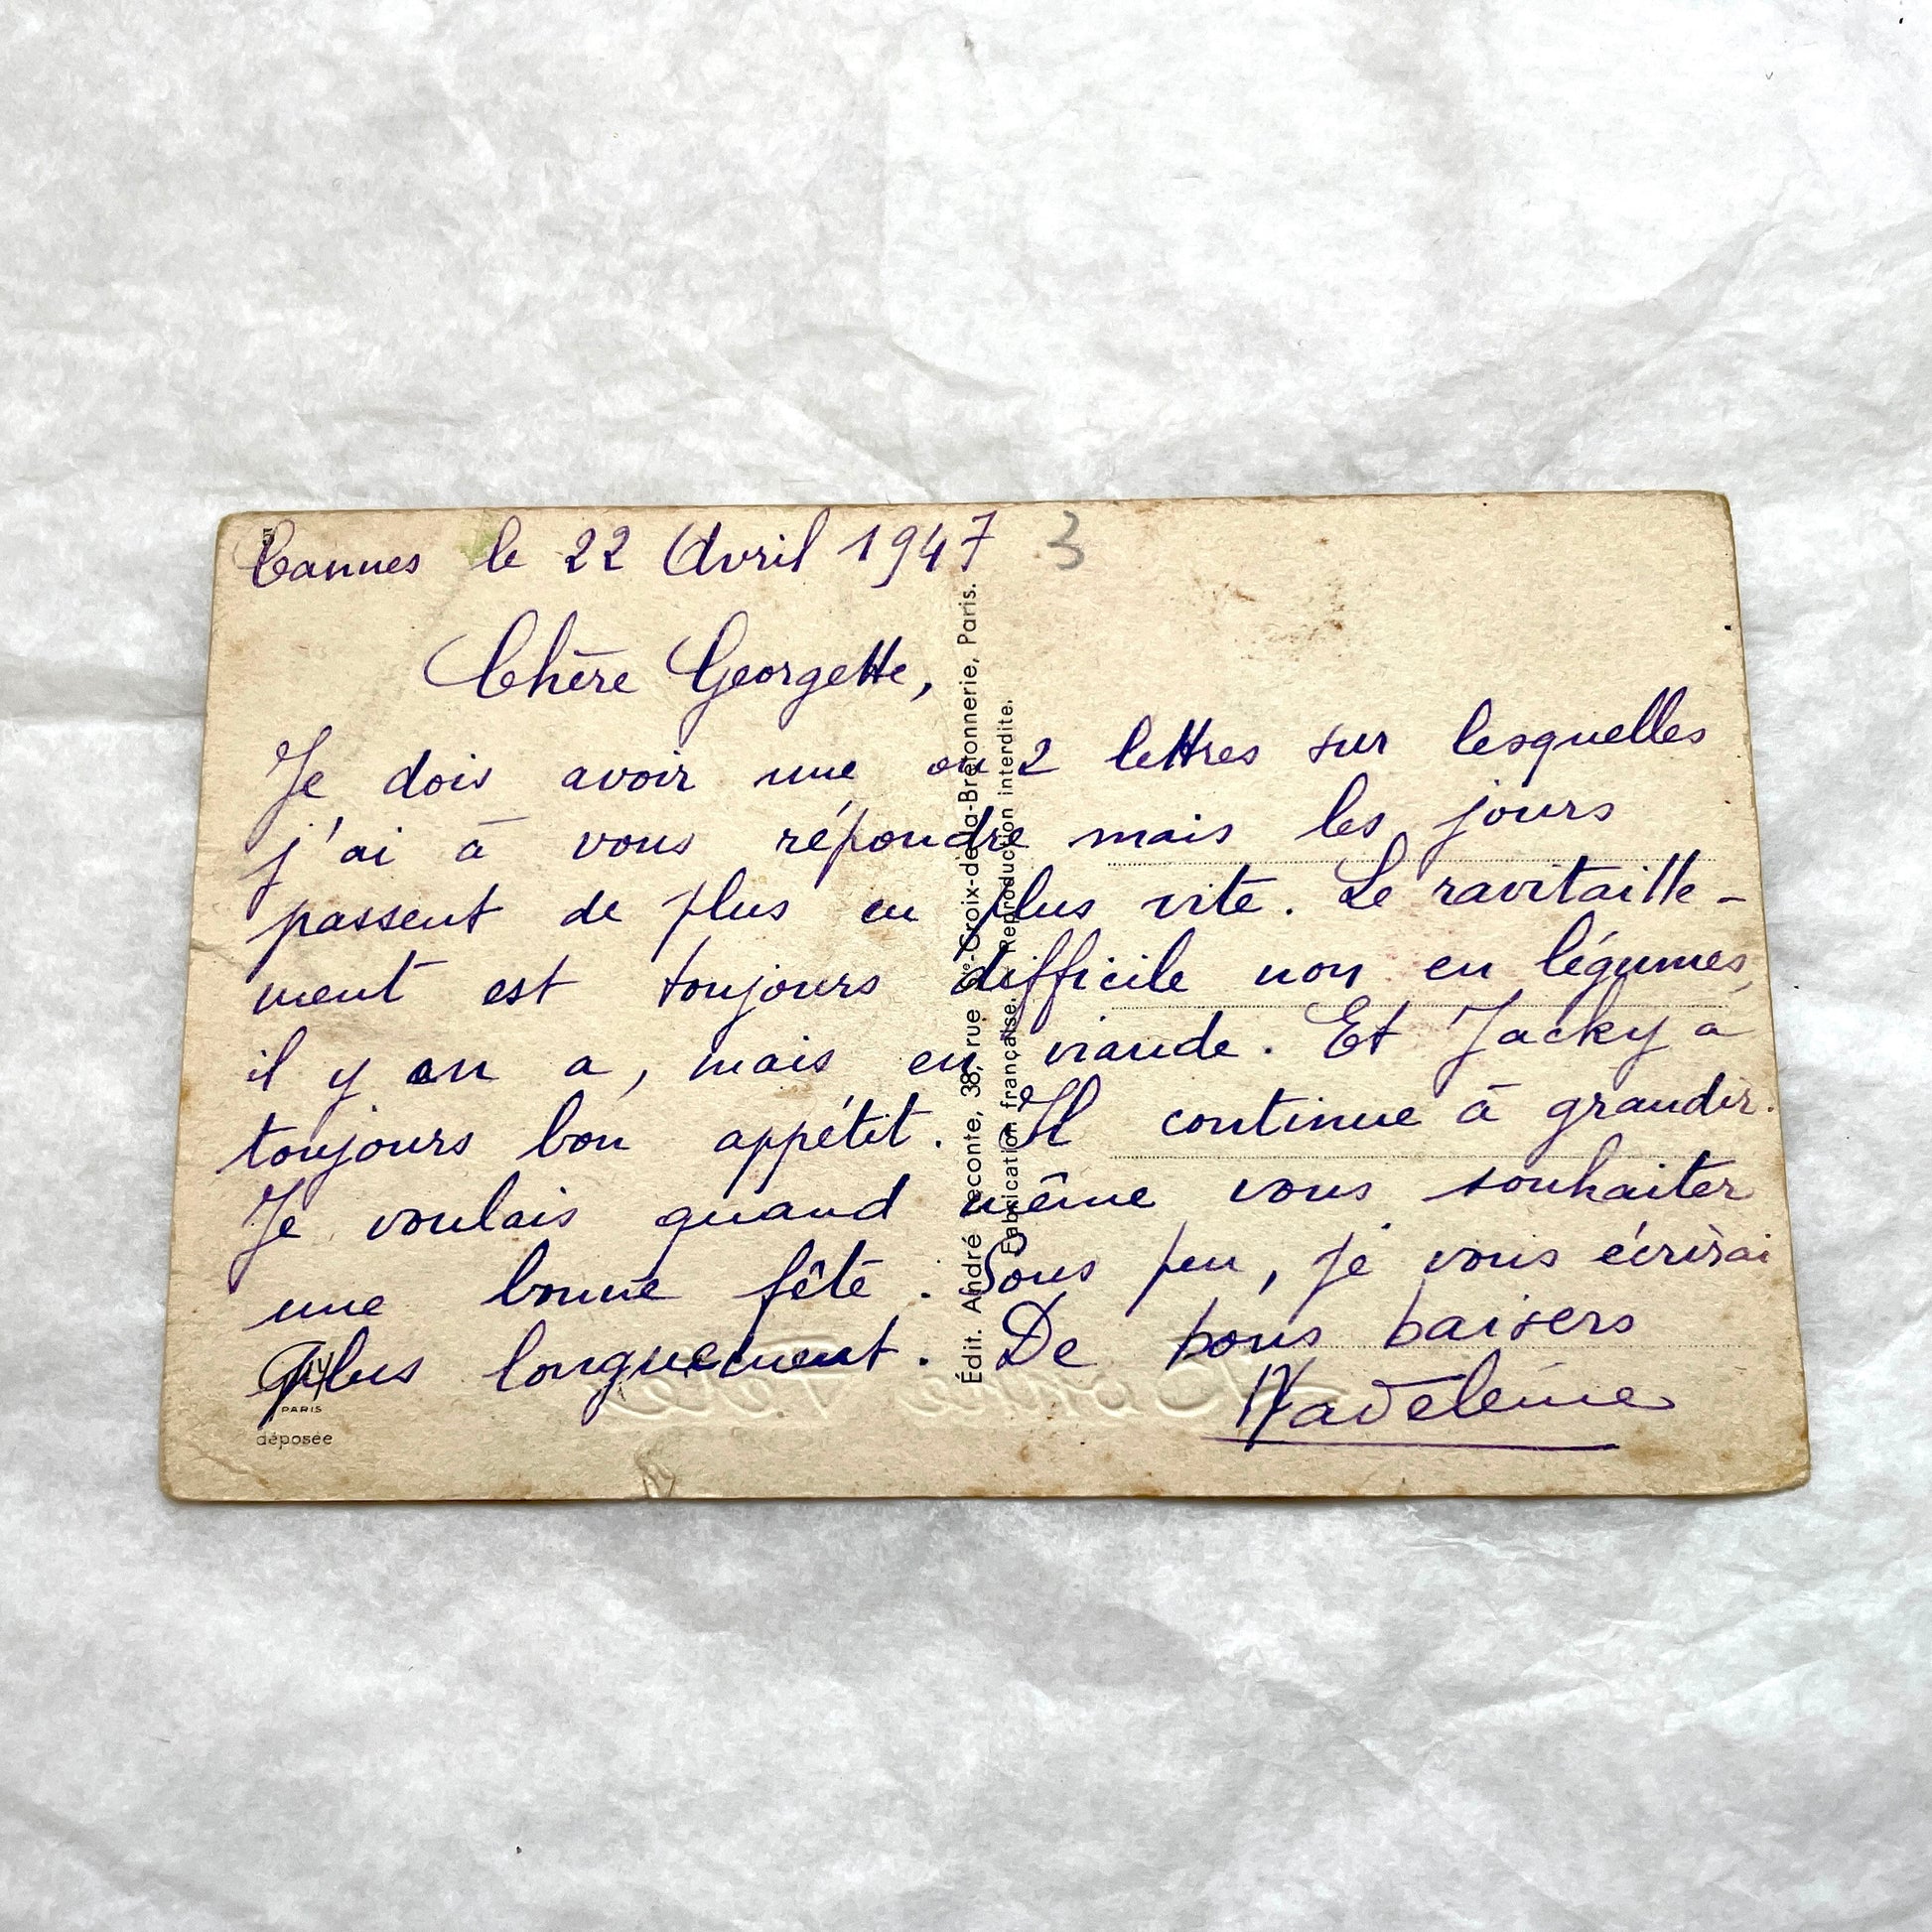 Cannes le 22 Avril 1947
3
Chère Georgette,
Je dois avoir une ou 2 lettres sur lesquelles
j'ai à vous répondre mais les jours
passent de plus en plus vite. Le ravitaille-
ment est toujours difficile non en légumes,
il y en a, mais en viande. Et Jacky a
toujours bon appétit. Il continue à grandir.
Je voulais quand même vous souhaiter
une bonne fête. Sous peu, je vous écrirai
plus longuement. De bons baisers
Madeleine
Édit. André Leconte, 38, rue Ste-Croix-de-la-Bretonnerie, Paris.
Fabrication française. Reproduction interdite.
PARIS
déposée
Bonne Fête